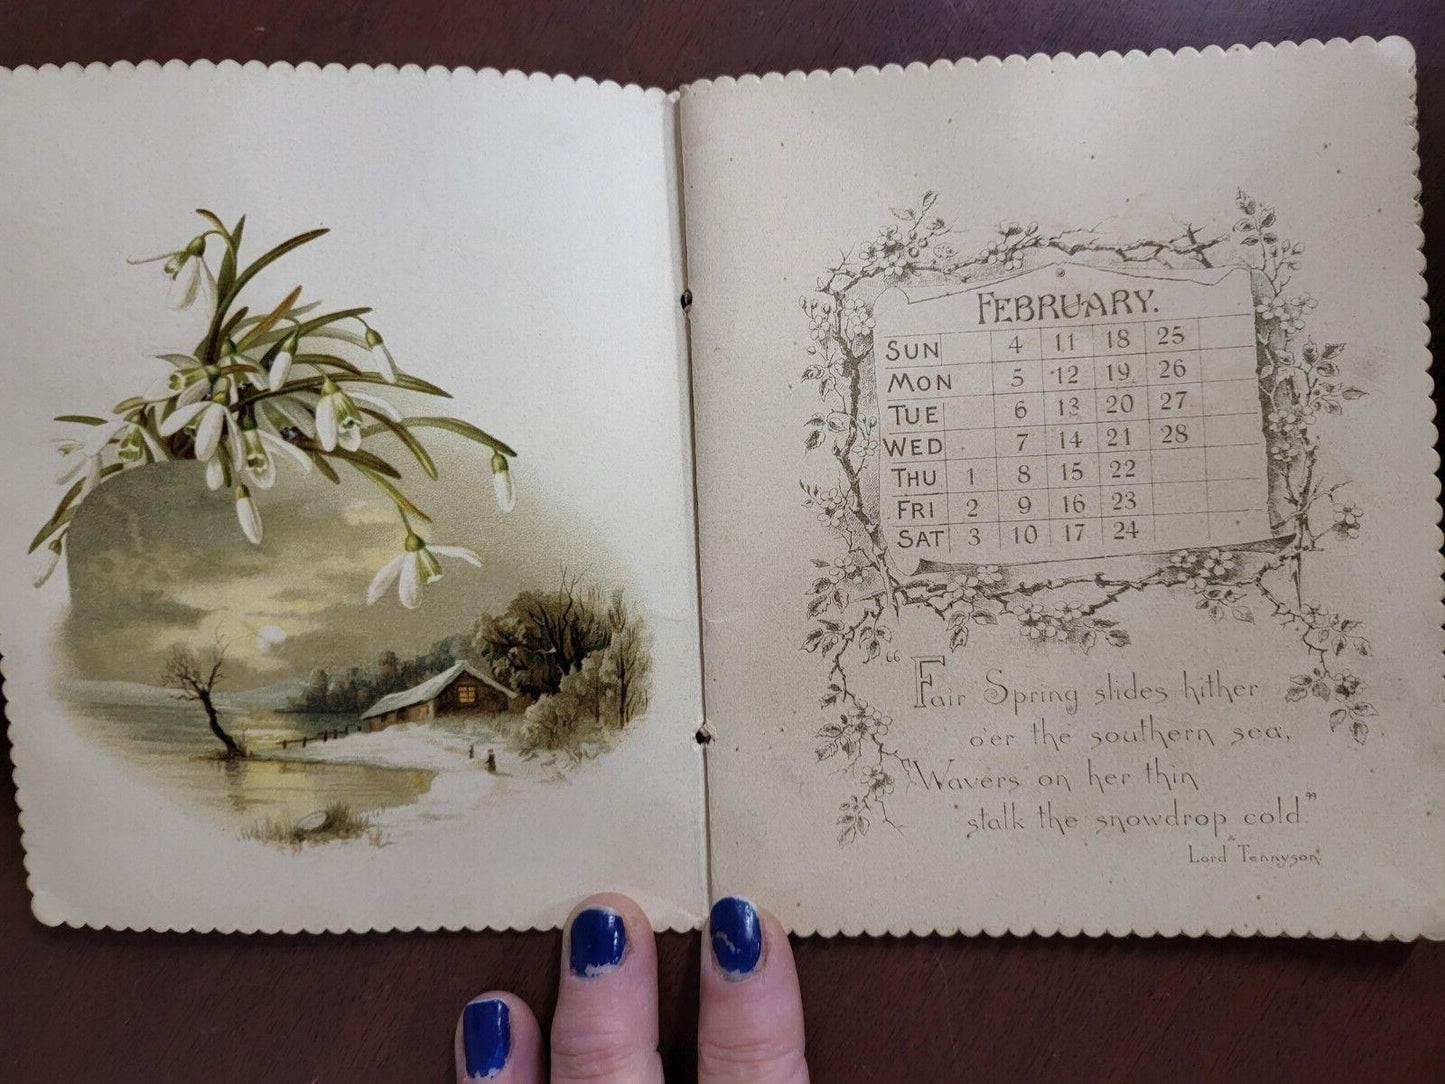 FEBRUARY.
SUN 4 11 18 25
MON 5 12 19 26
TUE 6 13 20 27
WED 7 14 21 28
THU 1 8 15 22
FRI 2 9 16 23
SAT 3 10 17 24
"Fair Spring slides hither
o'er the southern sea,
Wavers on her thin
stalk the snowdrop cold."
Lord Tennyson